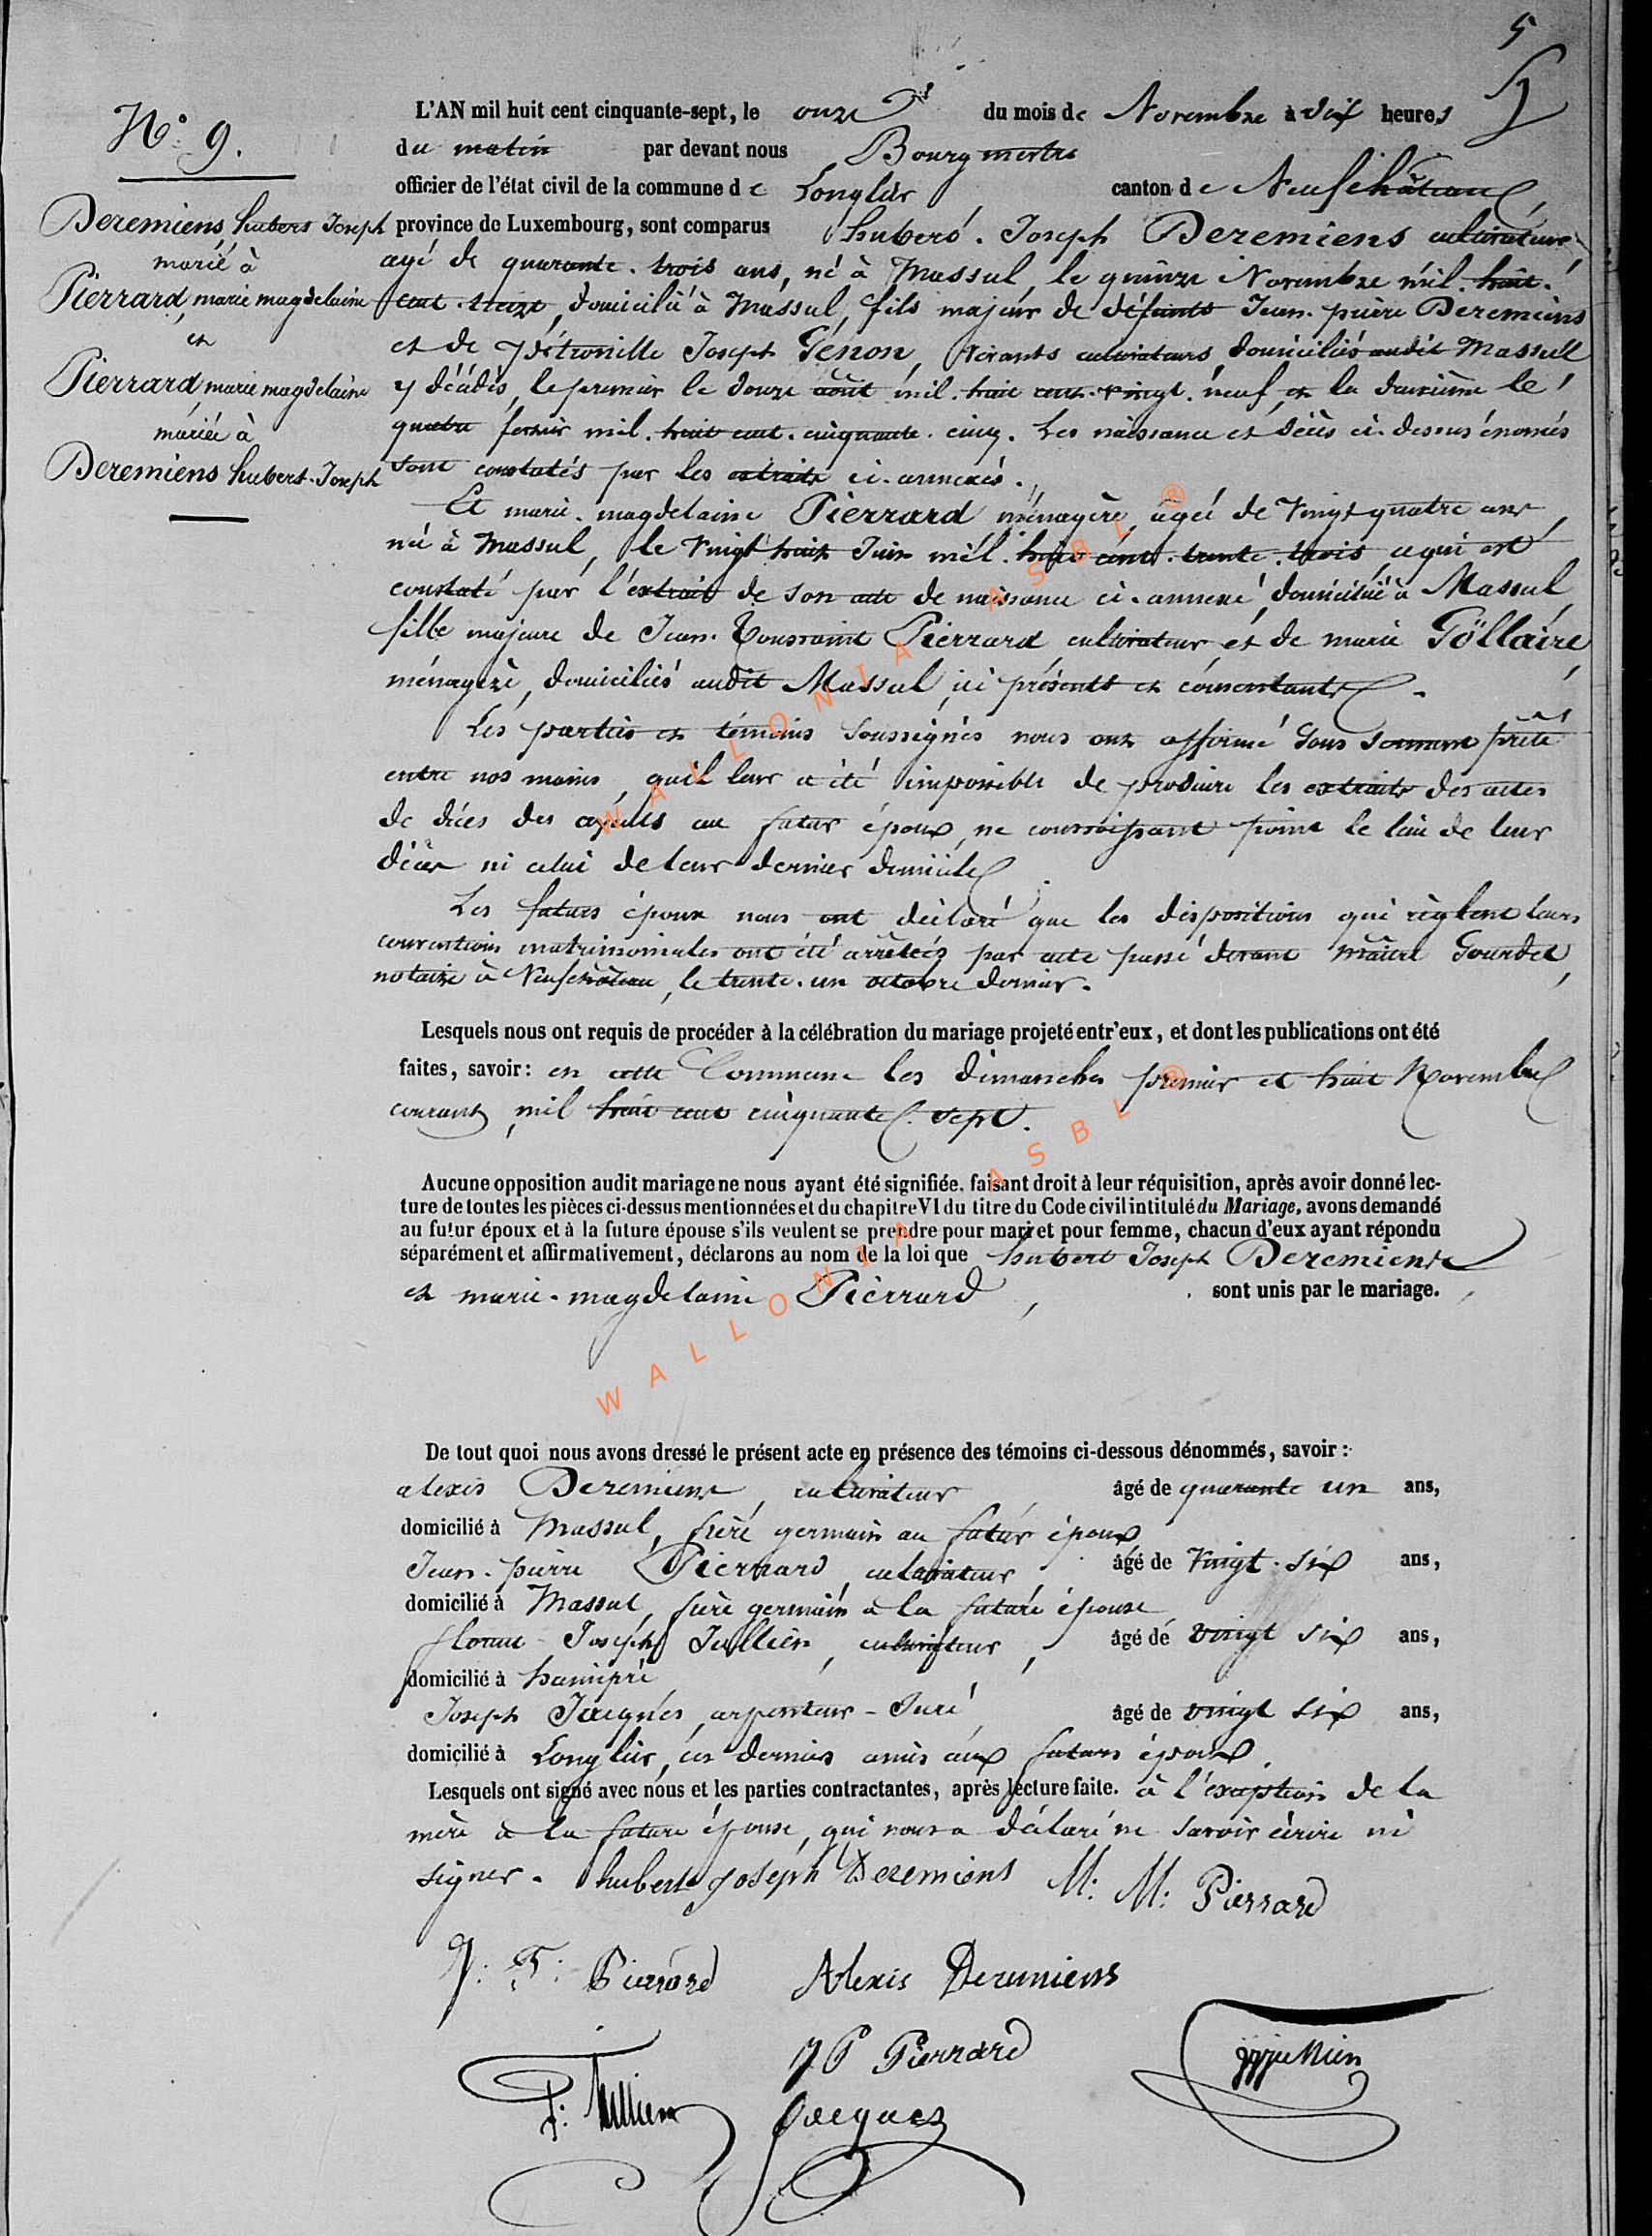 5
N° 9.
Deremiens hubert Joseph
marié à
Pierrard, marie magdelaine
et
Pierrard marie magdelaine
mariée à
Deremiens hubert-Joseph
L'AN mil huit cent cinquante-sept, le onze du mois de Novembre à dix heures
du matin par devant nous Bourgmestre
officier de l'état civil de la commune de Longlier canton de Neufchâteau,
province de Luxembourg, sont comparus hubert. Joseph Deremiens cultivateur
agé de quarante. trois ans, né à Massul, le quinze Novembre mil. huit.
cent. treize, domicilié à Massul, fils majeur de défunts Jean. pierre Deremiens
et de pétronille Joseph Génon, vivants cultivateurs, domiciliés audit Massul
y décédés, le premier le douze août mil. huit cent. vingt. neuf, et la deuxième le
quatre février mil. huit cent. cinquante. cinq. Les naissance et décès ci-dessus énoncés
sont constatés par les extraits ci-annexés.
Et marie. magdelaine Pierrard ménagère, agée de vingt quatre ans,
née à Massul, le vingt huit Juin mil. huit cent. trente. trois, ce qui est
constaté par l'extrait de son acte de naissance ci-annexé, domiciliée à Massul,
fille majeure de Jean. Toussaint Pierrard, cultivateur, et de marie Göllaire,
ménagère, domiciliés audit Massul, ici présents et consentants.
Les parties et témoins soussignés nous ont affirmé sous serment prêté
entre nos mains, qu'il leur a été impossible de produire les extraits des actes
de décès des ayeuls au futur époux, ne connoissant point le lieu de leur
décès ni celui de leur dernier domicile.
Les futurs époux nous ont déclaré que les dispositions qui règlent leurs
conventions matrimoniales ont été arrêtées par acte passé devant maître Gourdet,
notaire à Neufchâteau, le trente. un octobre dernier.
Lesquels nous ont requis de procéder à la célébration du mariage projeté entr'eux, et dont les publications ont été
faites, savoir: en cette Commune les dimanches premier et huit Novembre
courant, mil huit cent cinquante. sept.
Aucune opposition audit mariage ne nous ayant été signifiée, faisant droit à leur réquisition, après avoir donné lec-
ture de toutes les pièces ci-dessus mentionnées et du chapitre VI du titre du Code civil intitulé du Mariage, avons demandé
au futur époux et à la future épouse s'ils veulent se prendre pour mari et pour femme, chacun d'eux ayant répondu
séparément et affirmativement, déclarons au nom de la loi que hubert Joseph Deremiens
et marie-magdelaine Pierrard, sont unis par le mariage.
De tout quoi nous avons dressé le présent acte en présence des témoins ci-dessous dénommés, savoir:
alexis Deremiens, cultivateur âgé de quarante un ans,
domicilié à Massul, frère germain au futur époux
Jean-pierre Pierrard, cultivateur, âgé de vingt-six ans,
domicilié à Massul, frère germain à la future épouse
Joseph Jullien, cultivateur, âgé de vingt six ans,
domicilié à hamipré
Joseph Jacques, arpenteur-Juré, âgé de vingt six ans,
domicilié à Longlier, ces derniers amis aux futurs époux.
Lesquels ont signé avec nous et les parties contractantes, après lecture faite. à l'exception de la
mère à la future épouse, qui nous a déclaré ne savoir écrire ni
signer. hubert Joseph Deremiens M: M: Pierrard
J: T: Pierrard Alexis Deremiens
JP Pierrard
F: Jullien Jacques
WALLONIA ASBL ®
WALLONIA ASBL ®